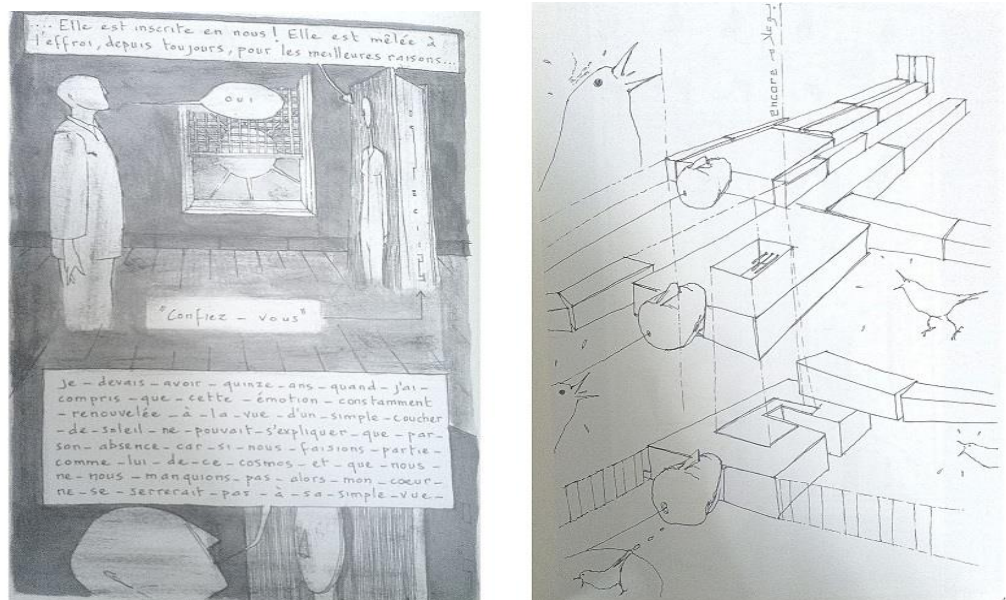 ... Elle est inscrite en nous ! Elle est mêlée à
l'effroi, depuis toujours, pour les meilleures raisons...
OUI
"Confiez - vous"
je - devais - avoir - quinze - ans - quand - j'ai -
compris - que - cette - émotion - constamment
- renouvelée - à - la - vue - d'un - simple - coucher
- de - soleil - ne - pouvait - s'expliquer - que - par -
son - absence - car - si - nous - faisions - partie -
comme - lui - de - ce - cosmos - et - que - nous -
ne - nous - manquions - pas - alors - mon - cœur -
ne - se - serrerait - pas - à - sa - simple - vue -
encore